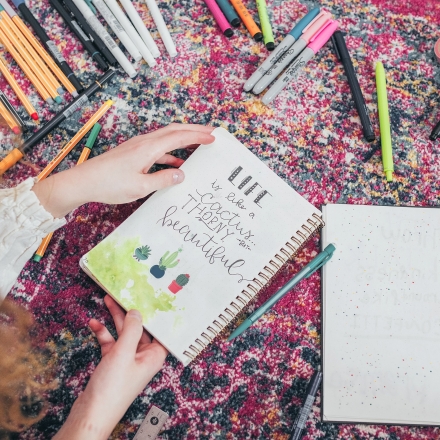 LIFE
is like a
cactus...
THORNY
-But-
beautiful